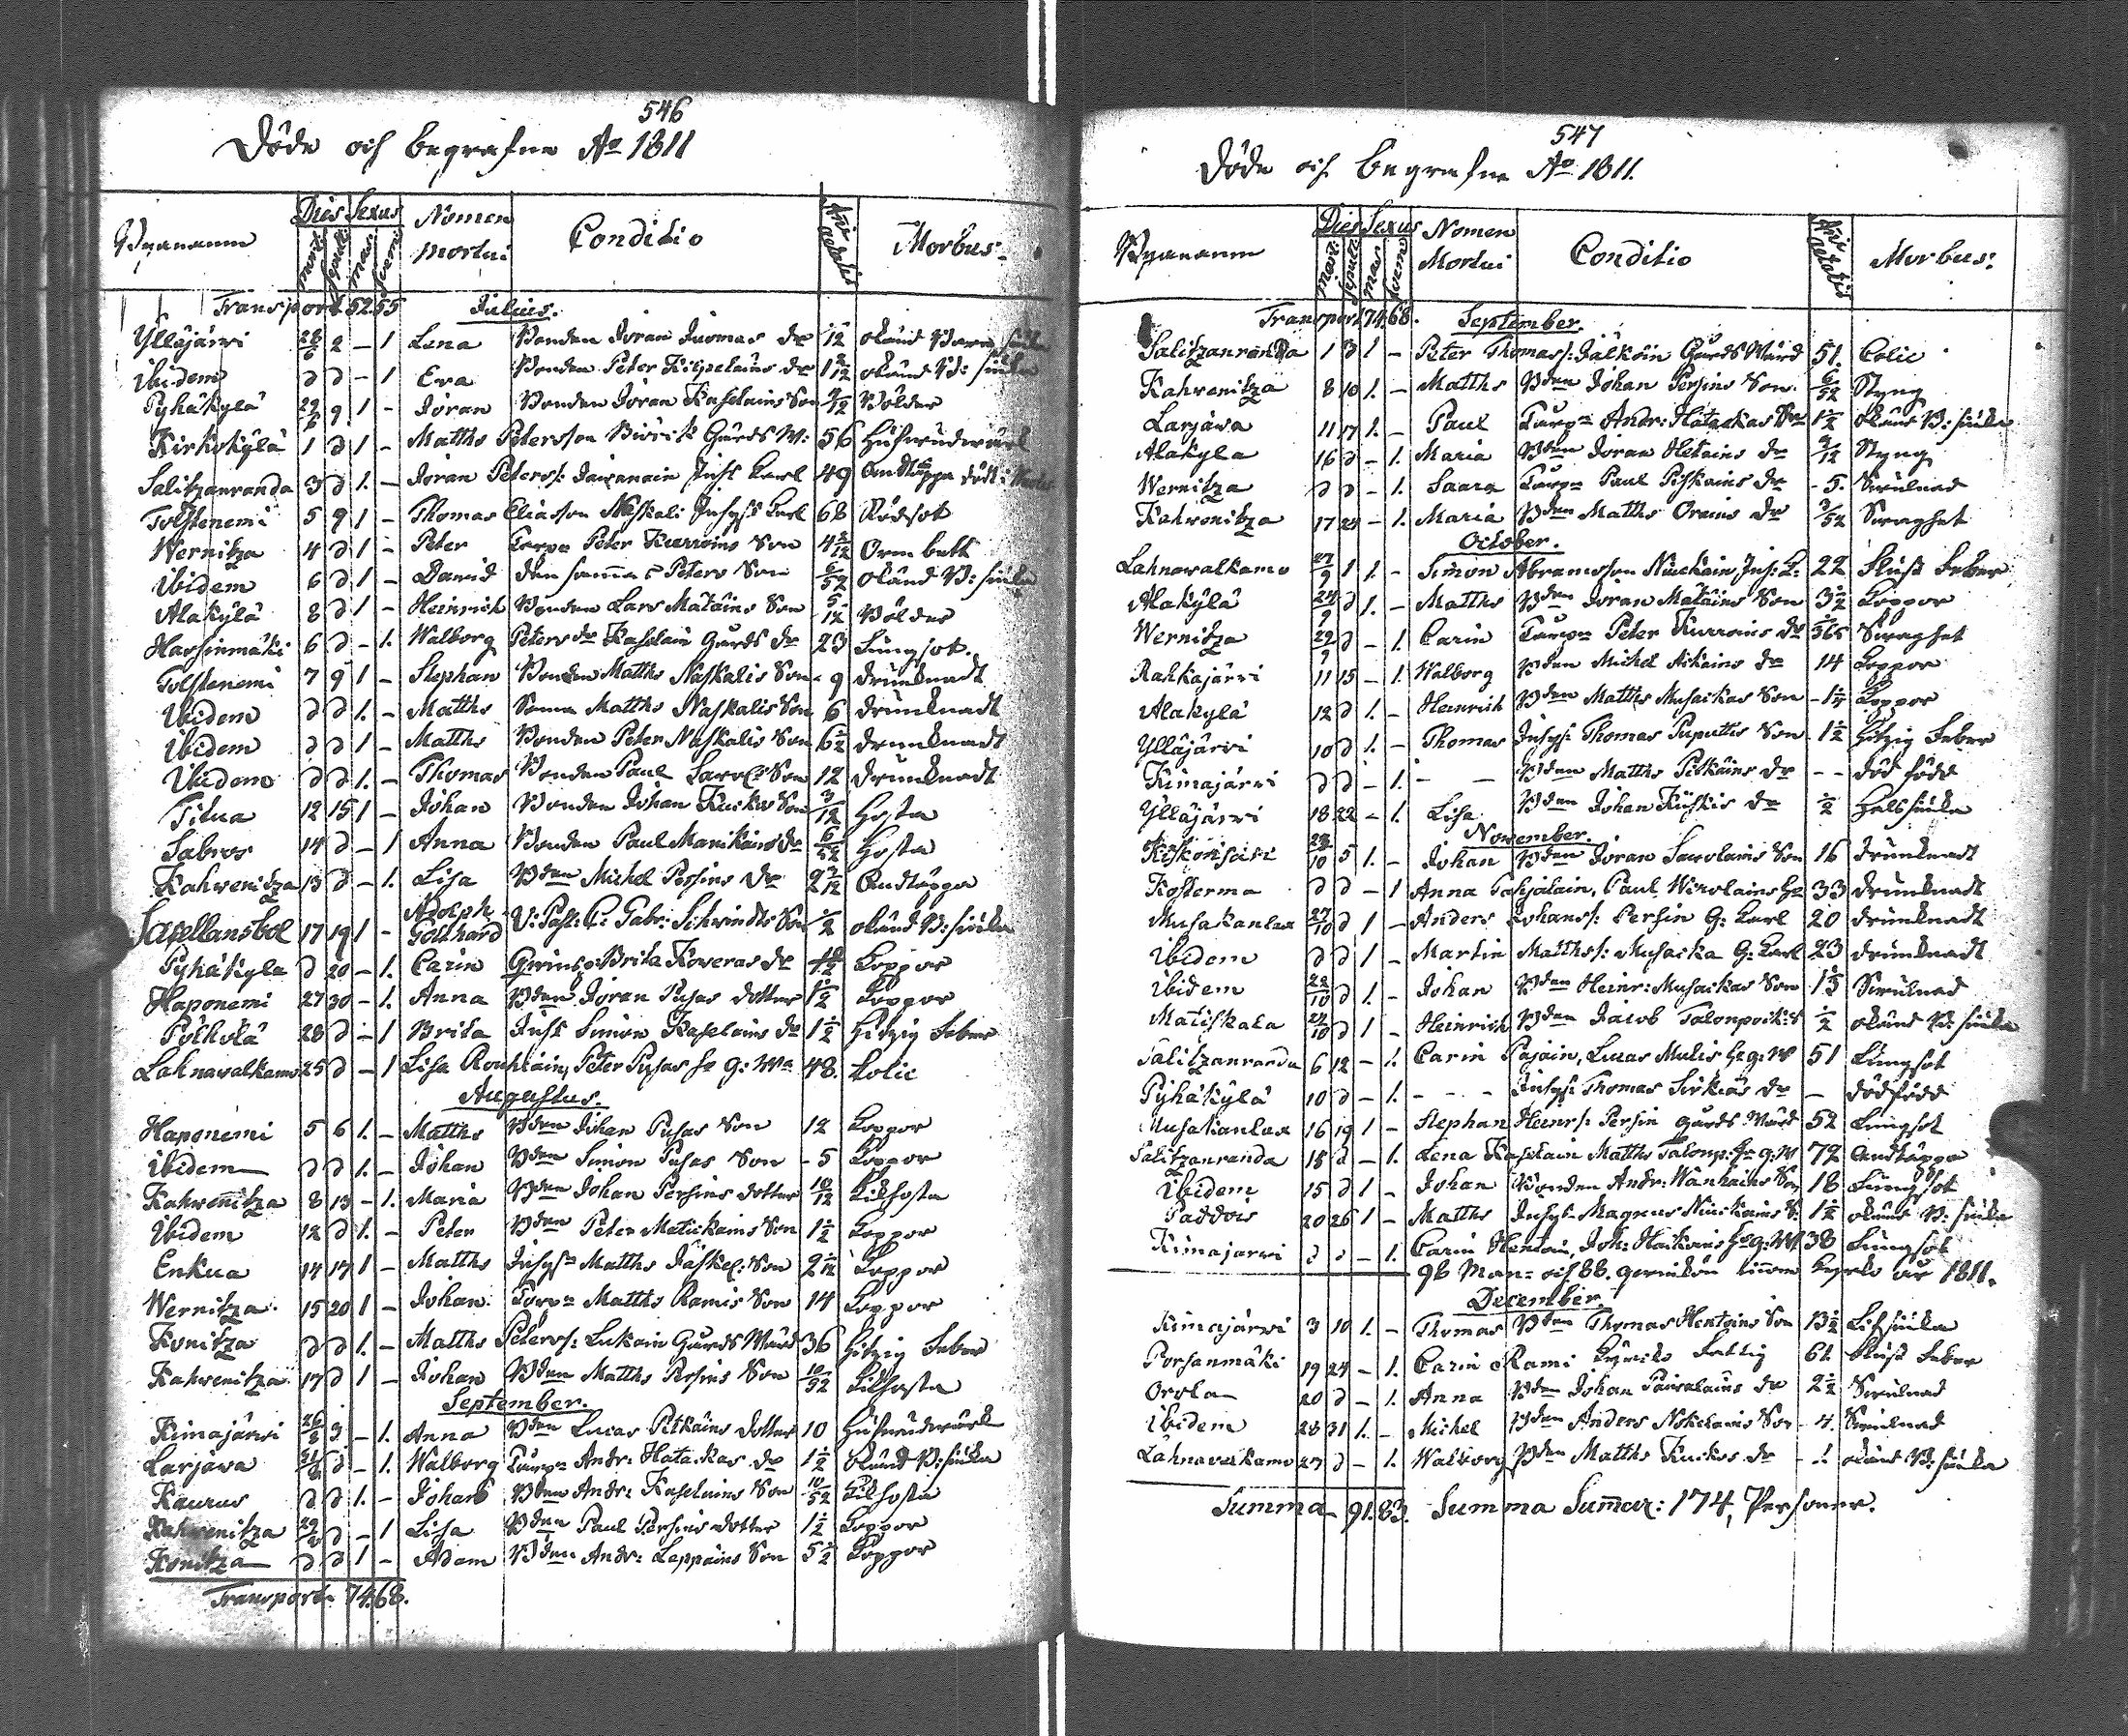 546
Döde och begrafne Ao 1811
Byanamn Dies Sexus Nomen Mortui Conditio Aetatis Morbus
mort: sepult: mas: foem:
Transport 52. 55 Julius.
Ylläjärvi 28/6 2 - 1 Lena Bonden Jöran Juomas dr /12 okänd Barn sjuka
ibidem d d - 1 Eva Bonden Peter dr okänd B: sjuka
Pyhäkylä 29/6 9 1 - Jöran Bonden Jöran Kaselains Son /12 Bölder
Kirkokylä 1 d 1 - Matths Petersson Gårds W: 56 Hufvudwärk
Salitzanranda 3 d 1. - Jöran Peters: Karl 49 Andtäppa
Tolstenemi 5 9 1 - Thomas Eliasson Naskali Inhys Karl 68 Rödsot
Wernitza 4 d 1 - Peter Torp= Peter Kurroins Son 4 /12 Orm bett
ibidem 6 d 1 - David den samma Peters Son 6/52 okänd B: sjuka
Alakylä 8 d 1 - Heinrich Bonden Lars Matäins Son 5/12 Bölder
Hassinmäki 6 d - 1. Walborg Peters dr Kaselain Gårds dr 23 Lungsot.
Tolstenemi 7 9 1 - Stephan Bonden Matths Naskalis Son - 9 drunknadt
Ibidem d d 1. - Matths Samma Matths Naskalis Son 6 drunknadt
Ibidem d d 1 - Matths Bonden Peter Naskalis Son 6 1/2 drunknadt
Ibidem d d 1. - Thomas Bonden Paul Son 12 drunknadt
Titua 12 15 1 - Johan Bonden Johan Kuikas Son 3/12 Hosta
Sabros 14 d - 1 Anna Bonden Paul Manikains dr 6/52 Hosta
Kahwenitza 13 d - 1. Lisa Bden Michel Persins dr 2 /12 Andtäppa
Capellansbol 17 19 1 - Adolph Gotthard V: Past: C: Gabr: Schwindts Son 1/2 okänd B: sjuka
Pyhäkylä d 20 - 1. Carin Brita Koveras dr Koppor
Haponemi 27 30 - 1. Anna Bden Jöran Pusas dotter 1 1/2 Koppor
Pölhölä 28 d - 1 Brita Inhs Simon Kaselains dr 1 1/2 Hitzig Feber
Lahnavalkamo 25 d - 1 Lisa Ronkain, Peter Pusas h: g: W= 48. Kolic
Augustus.
Haponemi 5 6 1. - Matths Bden Johan Pusas Son 12 Koppor
ibidem d d 1. - Johan Bden Simon Pusas Son - 5 Koppor
Kahwenitza 8 13 - 1. Maria Bden Johan Persins dotter 10/12 Kikhosta
Ibidem 12 d 1. - Peter Bden Peter Matickains Son 1 1/2 Koppor
Enkua 14 17 1 - Matths Inhys= Matths Jäskel: Son 2 Koppor
Wernitza 15 20 1 - Johan Torp= Matths Ramis Son 14 Koppor
Konitza d d 1. - Matths Peters: Lukain Gårds Wärd 36 Hitzig Feber
Kahwenitza 17 d 1 - Johan Bden Matths Persins Son 10/52 Kikhosta
September.
Kimajärvi 26/8 3 - 1. Anna Bden Lucas Pitkäins dotter 10 Hufvudwärk
Larjava 31/8 d - 1. Walborg Torp= Andr: Hatackas dr 1 1/2 Okänd B: sjuka
Kaurus d d 1. - Johan Bden Andr: Kaselains Son 10/52 Kikhosta
Kahwenitza 29/8 d - 1 Lisa Bden Paul Persins dotter 1 1/2 Koppor
Konitza d d 1 - Adam Bden Andr: Lappains Son 5 1/2 Koppor
Transport: 74. 68.
547
Döde och begrafne Ao 1811.
Byanamn Dies Sexus Nomen Mortui Conditio Aetatis Morbus:
mort: sepult: mas: foem:
Transport 74. 68. September.
Salitzanranda 1 3 1 - Peter Thomass: Jälköin Gårds Wärd 51. Colic
Kahwenitza 8 10 1. - Matths Bden Johan Persins Son 6/52 Styng
Larjava 11 17 1. - Paul Torp= Andr: Hatackas Son 1 1/2 okänd B: sjuka
Alakyla 16 d - 1. Maria Bden Jöran Hetains dr /12 Styng
Wernitza d d - 1. Saara Torp= Paul Piskains dr - 5. Swulnad
Kahwenitza 17 24 - 1. Maria Bden Matths Orains dr 3/52 Swaghet
October.
Lahnavalkamo 27/9 1 1. - Simon Abramsson Nuickain Inh: K: 22 Fluss Feber
Alakylä 24/9 d 1. - Matths Bden Jöran Matäins Son 3 1/2 Koppor
Wernitza 29/9 d - 1. Carin Torp= Peter Kurroins dr /365 Swaghet
Rahkajärvi 11 15 - 1. Walborg Bden Michel Aikains dr 14 Koppor
Alakylä 12 d 1. - Heinrich Bden Matths Musackas Son - 1 Koppor
Ylläjärvi 10 d 1. - Thomas Inhys: Thomas Puputtis Son 1 1/2 Hitzig Feber
Kimajärvi d d - 1. - - Bden Matths Pitkäins dr - - död född
Ylläjärvi 18 22 - 1. Lisa Bden Johan Kiiskis dr 1/2 Halssjuka
November.
Kiskonsari 28/10 5 1. - Johan Bden Jöran Savolains Son 16 drunknadt
Kosterma d d - 1 Anna Paul 33 drunknadt
Musakanlax 27/10 d 1 - Anders Johans: Persin G: Karl 20 drunknadt
Ibidem d d 1 - Martin Matths: Musacka G: Karl 23 drunknadt
ibidem 22/10 d 1. - Johan Bden Heinr: Musackas Son 1 Swulnad
Matiskala 24/10 d 1 - Heinrich Bden Jacob Talonpoik: S 1/2 okänd B: sjuka
Salitzanranda 6 12 - 1. Carin Pajain, Lucas Mulis h: g: W 51 Lungsot
Pyhäkylä 10 d - 1. - - - Inhys: Thomas Sirkiäs dr - dödfödd
Musakanlax 16 19 1 - Stephan Heinrs: Persin gårds Wärd 52 Lungsot
Salitzanranda 18 d - 1. Lena Kaselain Matths Talonp: h: g: W 72 Andtäppa
Ibidem 15 d 1 - Johan Bonden Andr: Wanhains Son 18 Lungsot
Paddois 20 26 1 - Matths Inhys: Magnus Nuickains S: 1 1/2 okänd B: sjuka
Kimajarvi d d - 1. Carin Hentoin, Joh: Haikains h: g: W 38 Lungsot
98 Man= och 88. qwinkön år 1811.
December.
Kimajärvi 3 10 1. - Thomas Bden Thomas Hentoins Son 13 1/2
Porsanmäki 19 24 - 1. Carin Rami Fattig 61. Fluss Feber
Orola 20 d - 1. Anna Bden Johan dr 2 1/2 Swulnad
Ibidem 28 31 1. - Michel Bden Anders Son - 4. Swulnad
Lahnavalkamo 27 d - 1. Walborg Bden Matths Kuikas dr - 1. okänd B: sjuka
Summa - 91. 83. Summa Summar: 174, Personer.